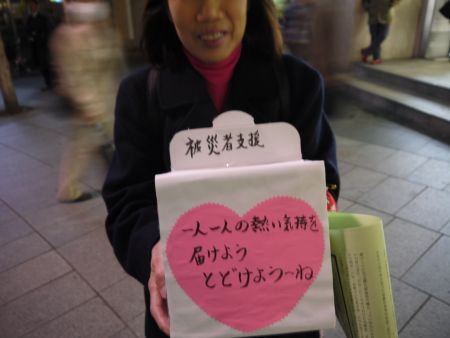 被災者支援
一人一人の熱い気持を
届けよう
とどけよう〜ね